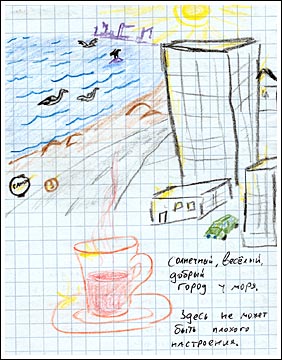 Солнечный, весёлый,
добрый
город у моря.
Здесь не может
быть плохого
настроения.